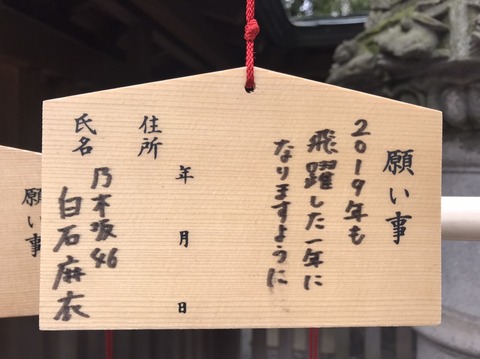 願い事
2019年も
飛躍した一年に
なりますように
年 月 日
住所
氏名
乃木坂46
白石麻衣
願い事